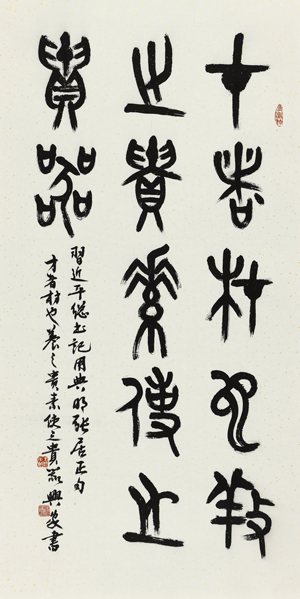 才者材也養
之貴素使之
貴器
習近平總書記用典明張居正句
才者材也養之貴素使之貴器 興 書